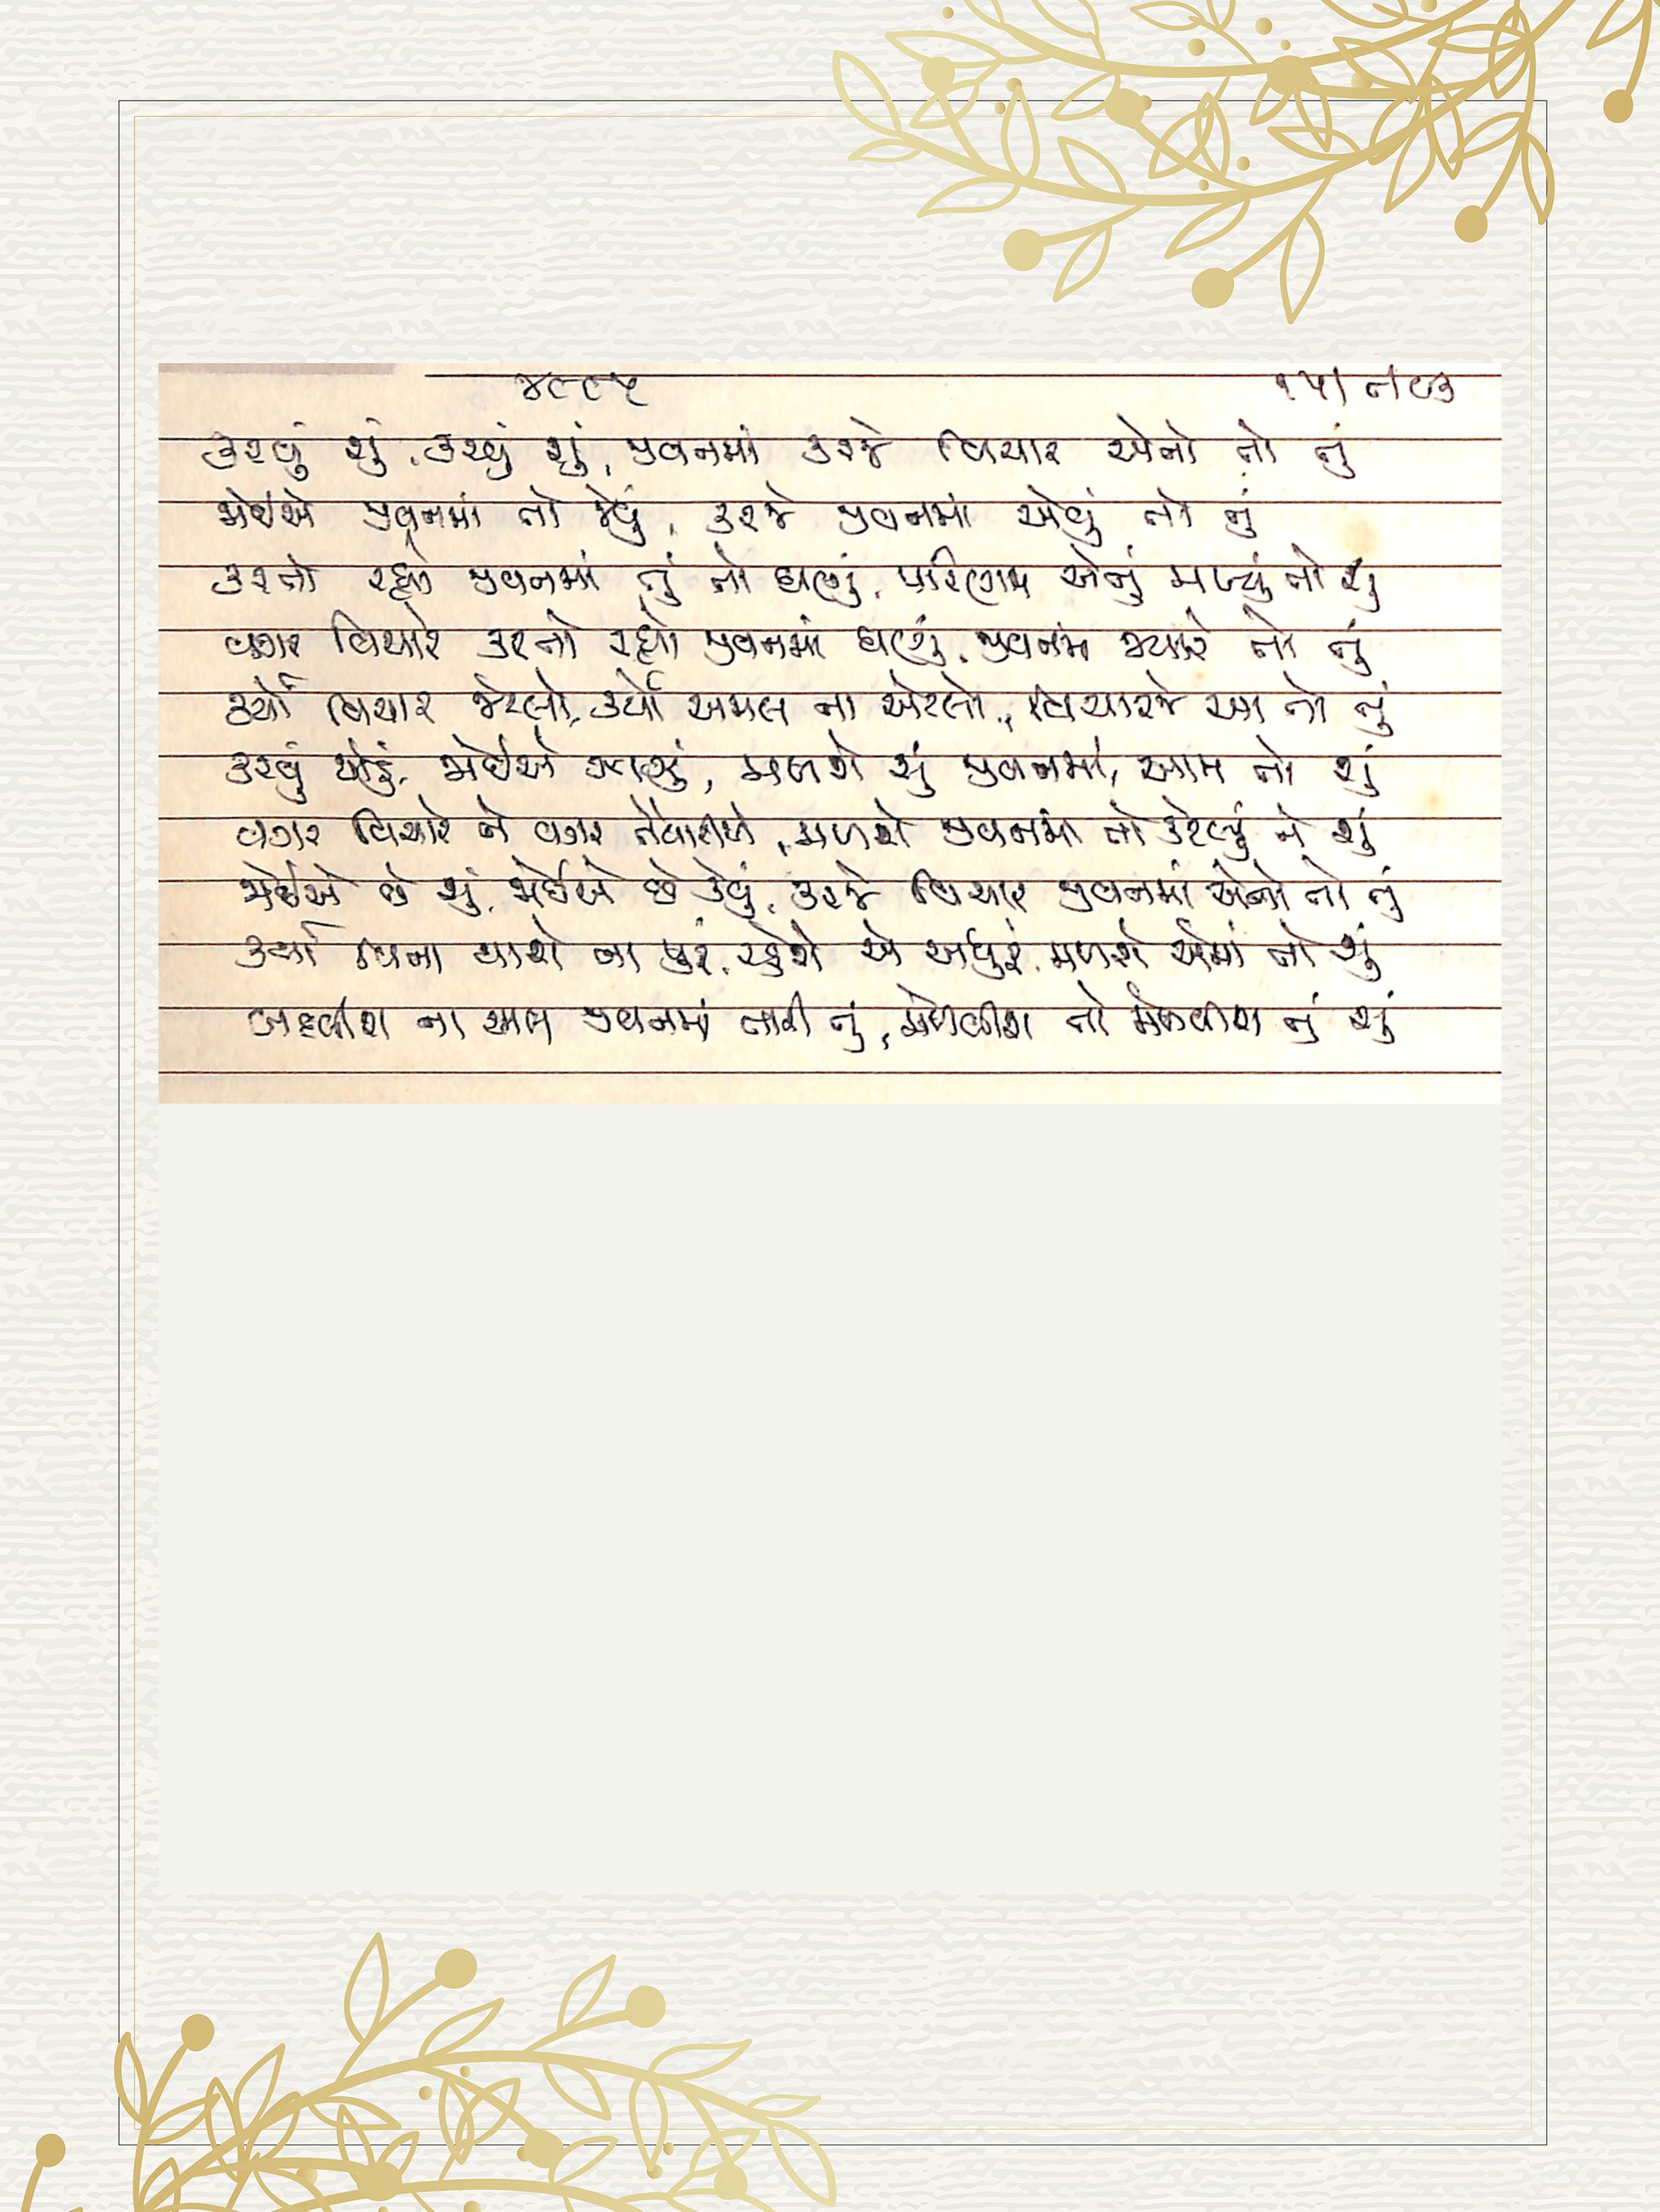 ૪૯૯૫
કરવું શું, કરવું શું, જીવનમાં કરજે વિચાર એનો તો તું
જોઈએ જીવનમાં તો જેવું, કરજે જીવનમાં એવું તો તું
કરતો રહ્યો જીવનમાં તું તો ઘણું, પરિણામ એનું મળ્યું તો શું
વગર વિચારે કરતો રહ્યો જીવનમાં ઘણું, જીવનમાં જ્યારે તો તું
કર્યો વિચાર જેટલો, કર્યો અમલ ના એટલો, વિચારજે આ તો તું
કરવું થોડું, જોઈએ ઝાઝું, મળશે શું જીવનમાં, આમ તો શું
વગર વિચારે ને વગર તૈયારીએ, મળશે જીવનમાં તો કેટલું ને શું
જોઈએ છે શું, જોઈએ છે કેવું, કરજે વિચાર જીવનમાં એનો તો તું
કર્યા વિના થાશે ના પુરું, રહેશે એ અધુરું, મળશે એમાં તો શું
બદલીશ ના ચાલ જીવનમાં તારી તું, મેળવીશ તો મેળવીશ તું શું